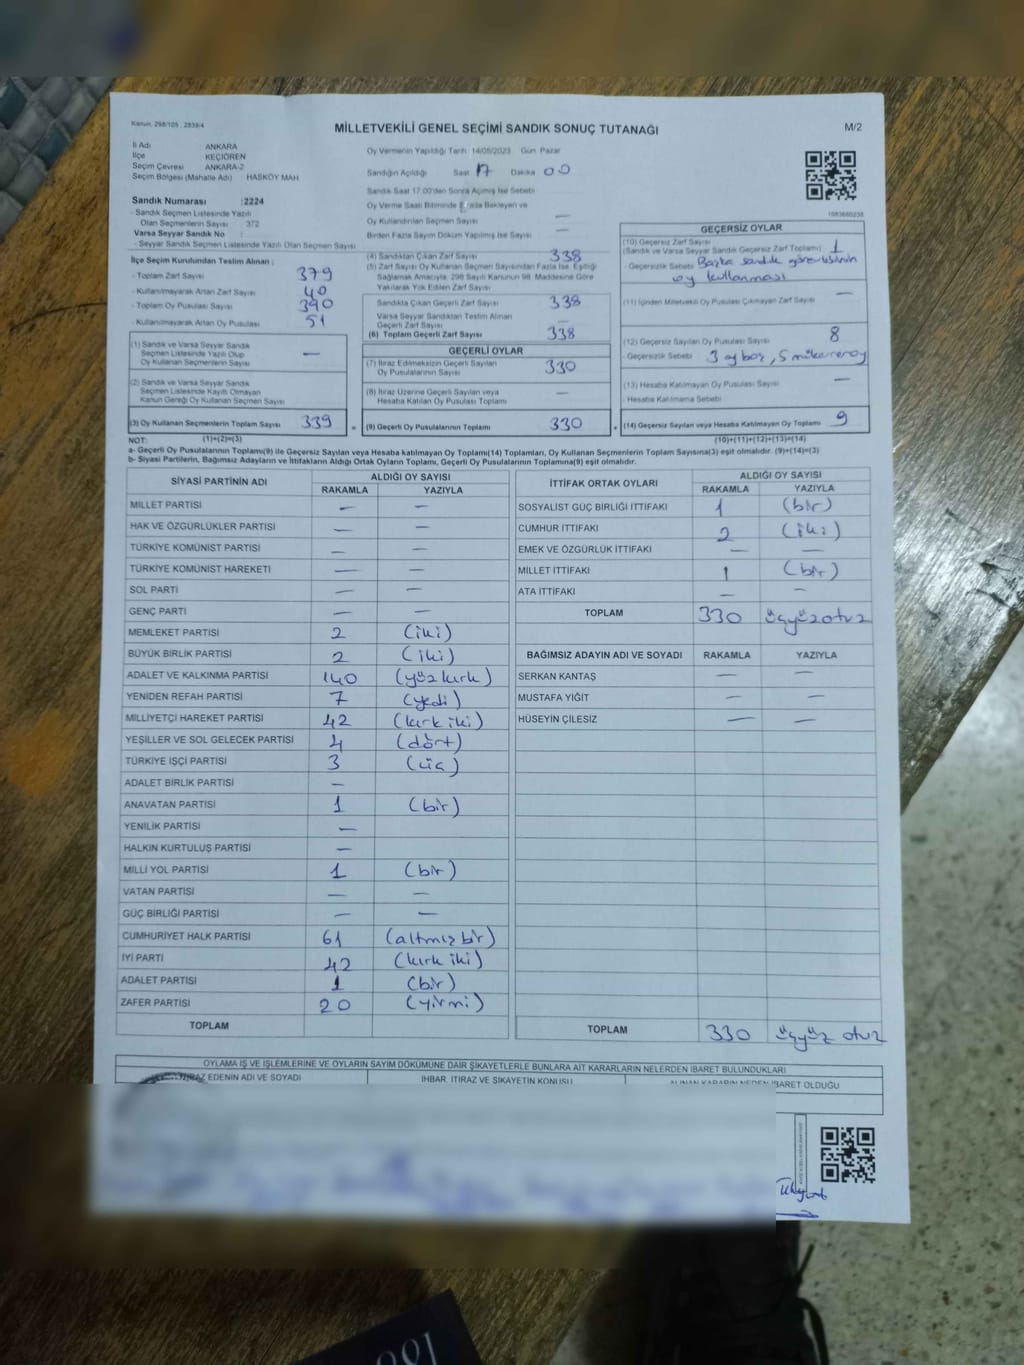 Kanun: 298/105 , 2839/4
MİLLETVEKİLİ GENEL SEÇİMİ SANDIK SONUÇ TUTANAĞI
M/2
İl Adı ANKARA
İlçe KEÇİÖREN
Seçim Çevresi ANKARA-2
Seçim Bölgesi (Mahalle Adı) HASKÖY MAH
Sandık Numarası :2224
- Sandık Seçmen Listesinde Yazılı
Olan Seçmenlerin Sayısı : 372
Varsa Seyyar Sandık No :
- Seyyar Sandık Seçmen Listesinde Yazılı Olan Seçmen Sayısı
Oy Vermenin Yapıldığı Tarih 14/05/2023 Gün Pazar
Sandığın Açıldığı Saat 17 Dakika 00
Sandık Saat 17.00'den Sonra Açılmış İse Sebebi
Oy Verme Saati Bitiminde Sırada Bekleyen ve
Oy Kullandırılan Seçmen Sayısı —
Birden Fazla Sayım Döküm Yapılmış İse Sayısı —
1083660238
İlçe Seçim Kurulundan Teslim Alınan ;
- Toplam Zarf Sayısı 379
- Kullanılmayarak Artan Zarf Sayısı 40
- Toplam Oy Pusulası Sayısı 390
- Kullanılmayarak Artan Oy Pusulası 51
(1) Sandık ve Varsa Seyyar Sandık
Seçmen Listesinde Yazılı Olup
Oy Kullanan Seçmenlerin Sayısı —
(2) Sandık ve Varsa Seyyar Sandık
Seçmen Listesinde Kayıtlı Olmayan
Kanun Gereği Oy Kullanan Seçmen Sayısı
(3) Oy Kullanan Seçmenlerin Toplam Sayısı 339 =
(1)+(2)=(3)
(4) Sandıktan Çıkan Zarf Sayısı 338
(5) Zarf Sayısı Oy Kullanan Seçmen Sayısından Fazla İse, Eşitliği
Sağlamak Amacıyla, 298 Sayılı Kanunun 98. Maddesine Göre
Yakılarak Yok Edilen Zarf Sayısı
Sandıkta Çıkan Geçerli Zarf Sayısı 338
Varsa Seyyar Sandıktan Teslim Alınan
Geçerli Zarf Sayısı —
(6) Toplam Geçerli Zarf Sayısı 338
GEÇERLİ OYLAR
(7) İtiraz Edilmeksizin Geçerli Sayılan
Oy Pusulalarının Toplamı 330
(8) İtiraz Üzerine Geçerli Sayılan veya
Hesaba Katılan Oy Pusulası Toplamı —
(9) Geçerli Oy Pusulalarının Toplamı 330 +
GEÇERSİZ OYLAR
(10) Geçersiz Zarf Sayısı
(Sandık ve Varsa Seyyar Sandık Geçersiz Zarf Toplamı) 1
- Geçersizlik Sebebi Başka sandık görevlisinin
oy kullanması
(11) İçinden Milletvekili Oy Pusulası Çıkmayan Zarf Sayısı —
(12) Geçersiz Sayılan Oy Pusulası Sayısı 8
- Geçersizlik Sebebi 3 oy boş, 5 mükerrer oy
(13) Hesaba Katılmayan Oy Pusulası Sayısı —
- Hesaba Katılmama Sebebi
(14) Geçersiz Sayılan veya Hesaba Katılmayan Oy Toplamı 9
(10)+(11)+(12)+(13)=(14)
NOT:
a- Geçerli Oy Pusulalarının Toplamı(9) ile Geçersiz Sayılan veya Hesaba katılmayan Oy Toplamı(14) Toplamları, Oy Kullanan Seçmenlerin Toplam Sayısına(3) eşit olmalıdır. (9)+(14)=(3)
b- Siyasi Partilerin, Bağımsız Adayların ve İttifakların Aldığı Ortak Oyların Toplamı, Geçerli Oy Pusulalarının Toplamına(9) eşit olmalıdır.
SİYASİ PARTİNİN ADI ALDIĞI OY SAYISI
RAKAMLA YAZIYLA
MİLLET PARTİSİ — —
HAK VE ÖZGÜRLÜKLER PARTİSİ — —
TÜRKİYE KOMÜNİST PARTİSİ — —
TÜRKİYE KOMÜNİST HAREKETİ — —
SOL PARTİ — —
GENÇ PARTİ — —
MEMLEKET PARTİSİ 2 (iki)
BÜYÜK BİRLİK PARTİSİ 2 (iki)
ADALET VE KALKINMA PARTİSİ 140 (yüz kırk)
YENİDEN REFAH PARTİSİ 7 (yedi)
MİLLİYETÇİ HAREKET PARTİSİ 42 (kırk iki)
YEŞİLLER VE SOL GELECEK PARTİSİ 4 (dört)
TÜRKİYE İŞÇİ PARTİSİ 3 (üç)
ADALET BİRLİK PARTİSİ —
ANAVATAN PARTİSİ 1 (bir)
YENİLİK PARTİSİ —
HALKIN KURTULUŞ PARTİSİ —
MİLLİ YOL PARTİSİ 1 (bir)
VATAN PARTİSİ — —
GÜÇ BİRLİĞİ PARTİSİ — —
CUMHURİYET HALK PARTİSİ 61 (altmış bir)
İYİ PARTİ 42 (kırk iki)
ADALET PARTİSİ 1 (bir)
ZAFER PARTİSİ 20 (yirmi)
TOPLAM
İTTİFAK ORTAK OYLARI ALDIĞI OY SAYISI
RAKAMLA YAZIYLA
SOSYALİST GÜÇ BİRLİĞİ İTTİFAKI 1 (bir)
CUMHUR İTTİFAKI 2 (iki)
EMEK VE ÖZGÜRLÜK İTTİFAKI — —
MİLLET İTTİFAKI 1 (bir)
ATA İTTİFAKI — —
TOPLAM 330 üçyüzotuz
BAĞIMSIZ ADAYIN ADI VE SOYADI RAKAMLA YAZIYLA
SERKAN KANTAŞ — —
MUSTAFA YİĞİT — —
HÜSEYİN ÇİLESİZ — —
TOPLAM 330 üçyüz otuz
OYLAMA İŞ VE İŞLEMLERİNE VE OYLARIN SAYIM DÖKÜMÜNE DAİR ŞİKAYETLERLE BUNLARA AİT KARARLARIN NELERDEN İBARET BULUNDUKLARI
İTİRAZ EDENİN ADI VE SOYADI
İHBAR, İTİRAZ VE ŞİKAYETİN KONUSU
ALINAN KARARIN NEDEN İBARET OLDUĞU